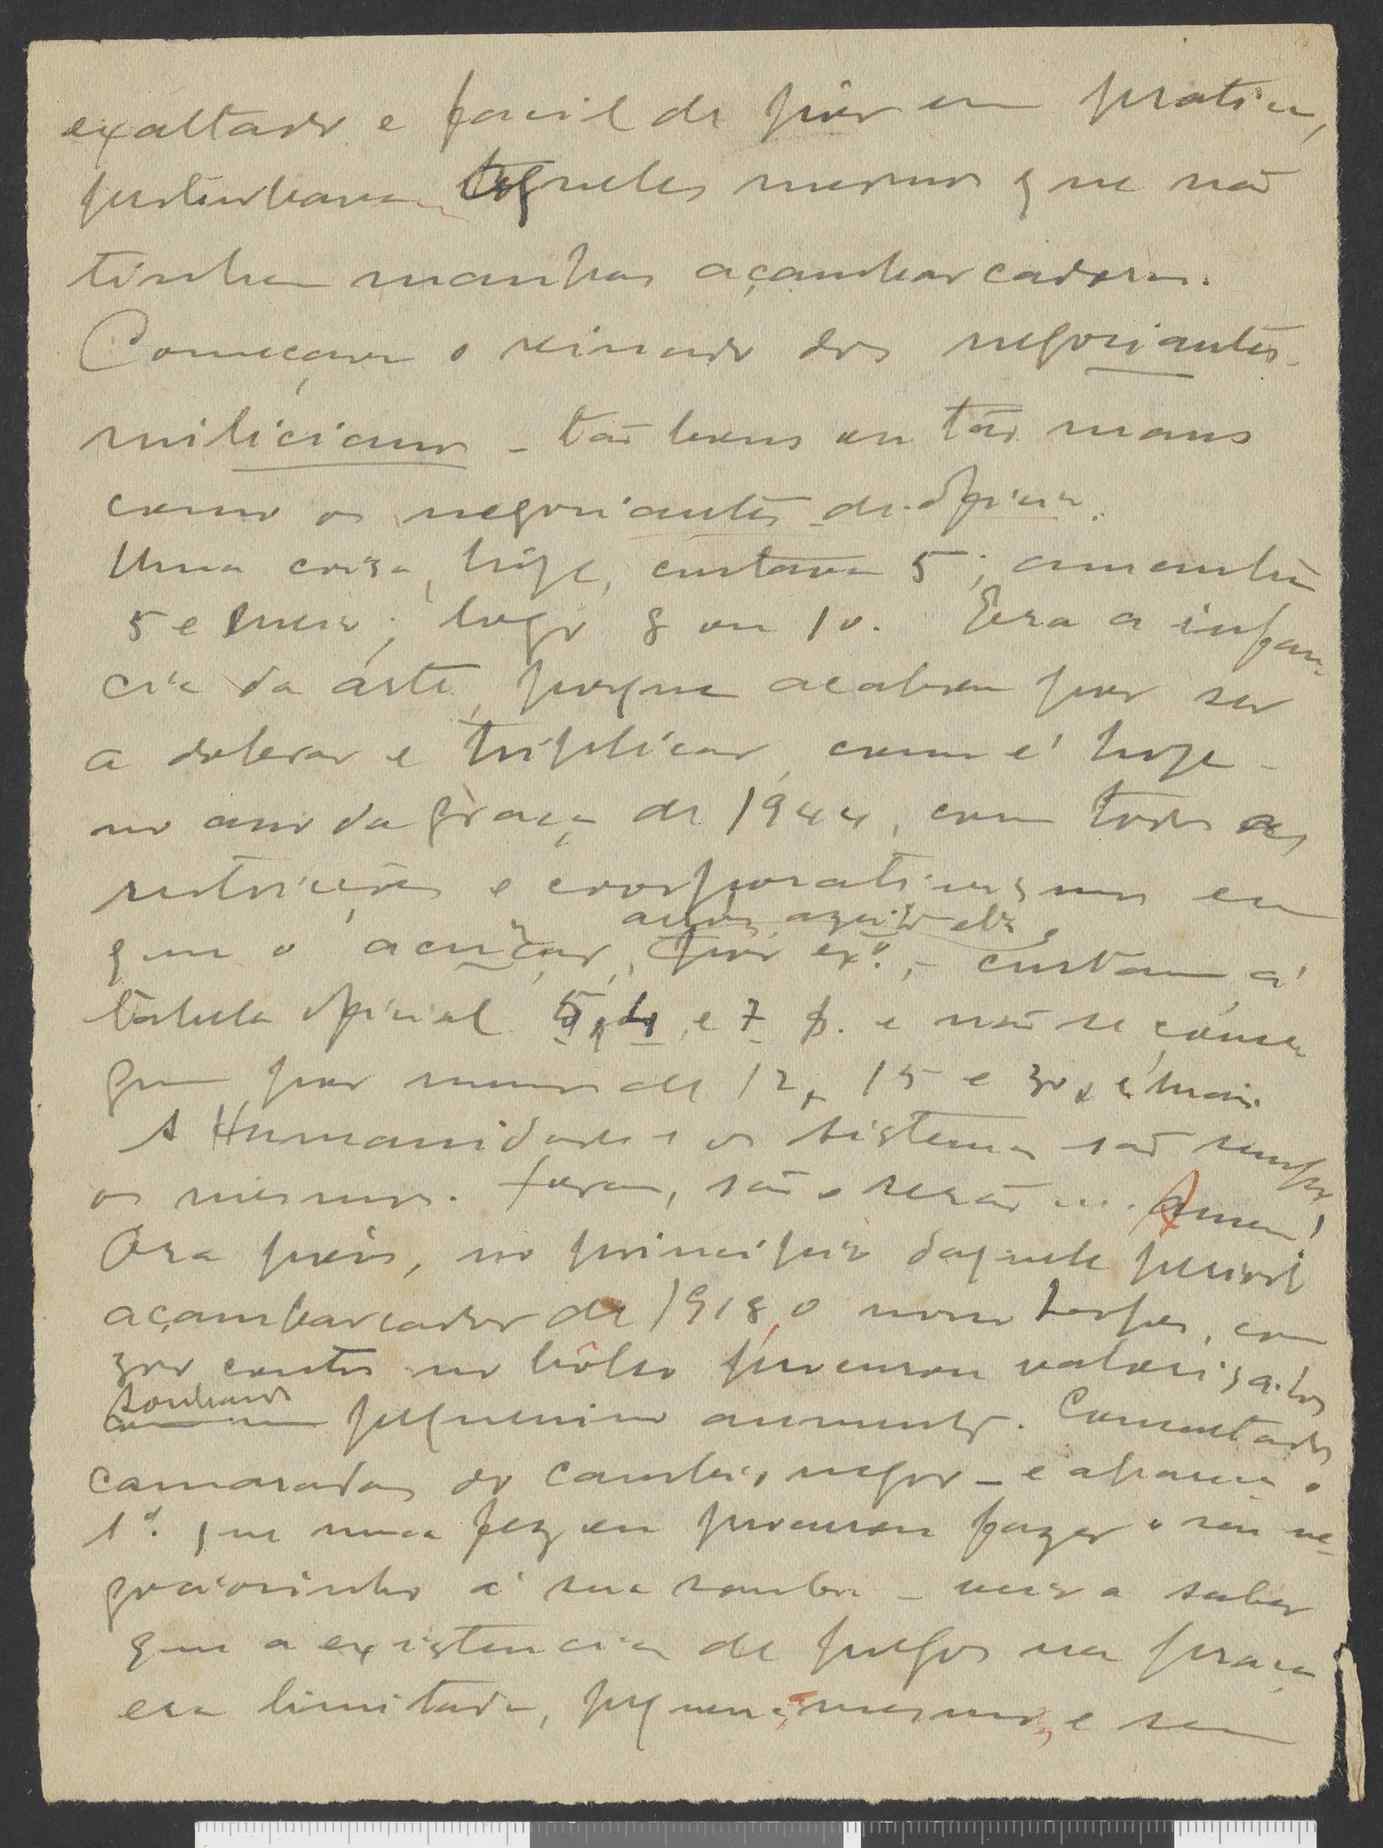 exaltado e facil de pôr em pratica,
perturbavam aqueles mesmos que não
tinham manhas açambarcadoras.
Começava o reinado dos negociantes-
milicianos - tão bons ou tão maus
como os negociantes-de-oficio.
Uma coisa, hoje, custava 5; amanhã
5 e meio; logo 8 ou 10. Era a infan-
cia da arte, porque acabou por ser
a dobrar e triplicar, como é hoje -
no ano da graça de 1944, com todas as
restrições e coorporativismos em
que o açuzcar, arroz, azeite etc, por exº., - custam á
tabela oficial 5, 4, e 7 $. e não se conse-
gue por menos de 12, 15 e 30, e mais.
A Humanidade e os sistemas são sempre
os mesmos. Foram, são e serão ... Amen!
Ora pois, no principio daquele periodo
açambarcador de 1918, o nosso , com
300 contos no bôlso procurou valorisa-los
sonhando pequenino aumento. Consultados
camaradas do cambio negro - e aparece o
1º. que nunca fez ou procurou fazer o seu ne-
gociosinho á sua sombra - veio a saber
que a existencia de pregos na praça
era limitada, pequena mesmo, e sem